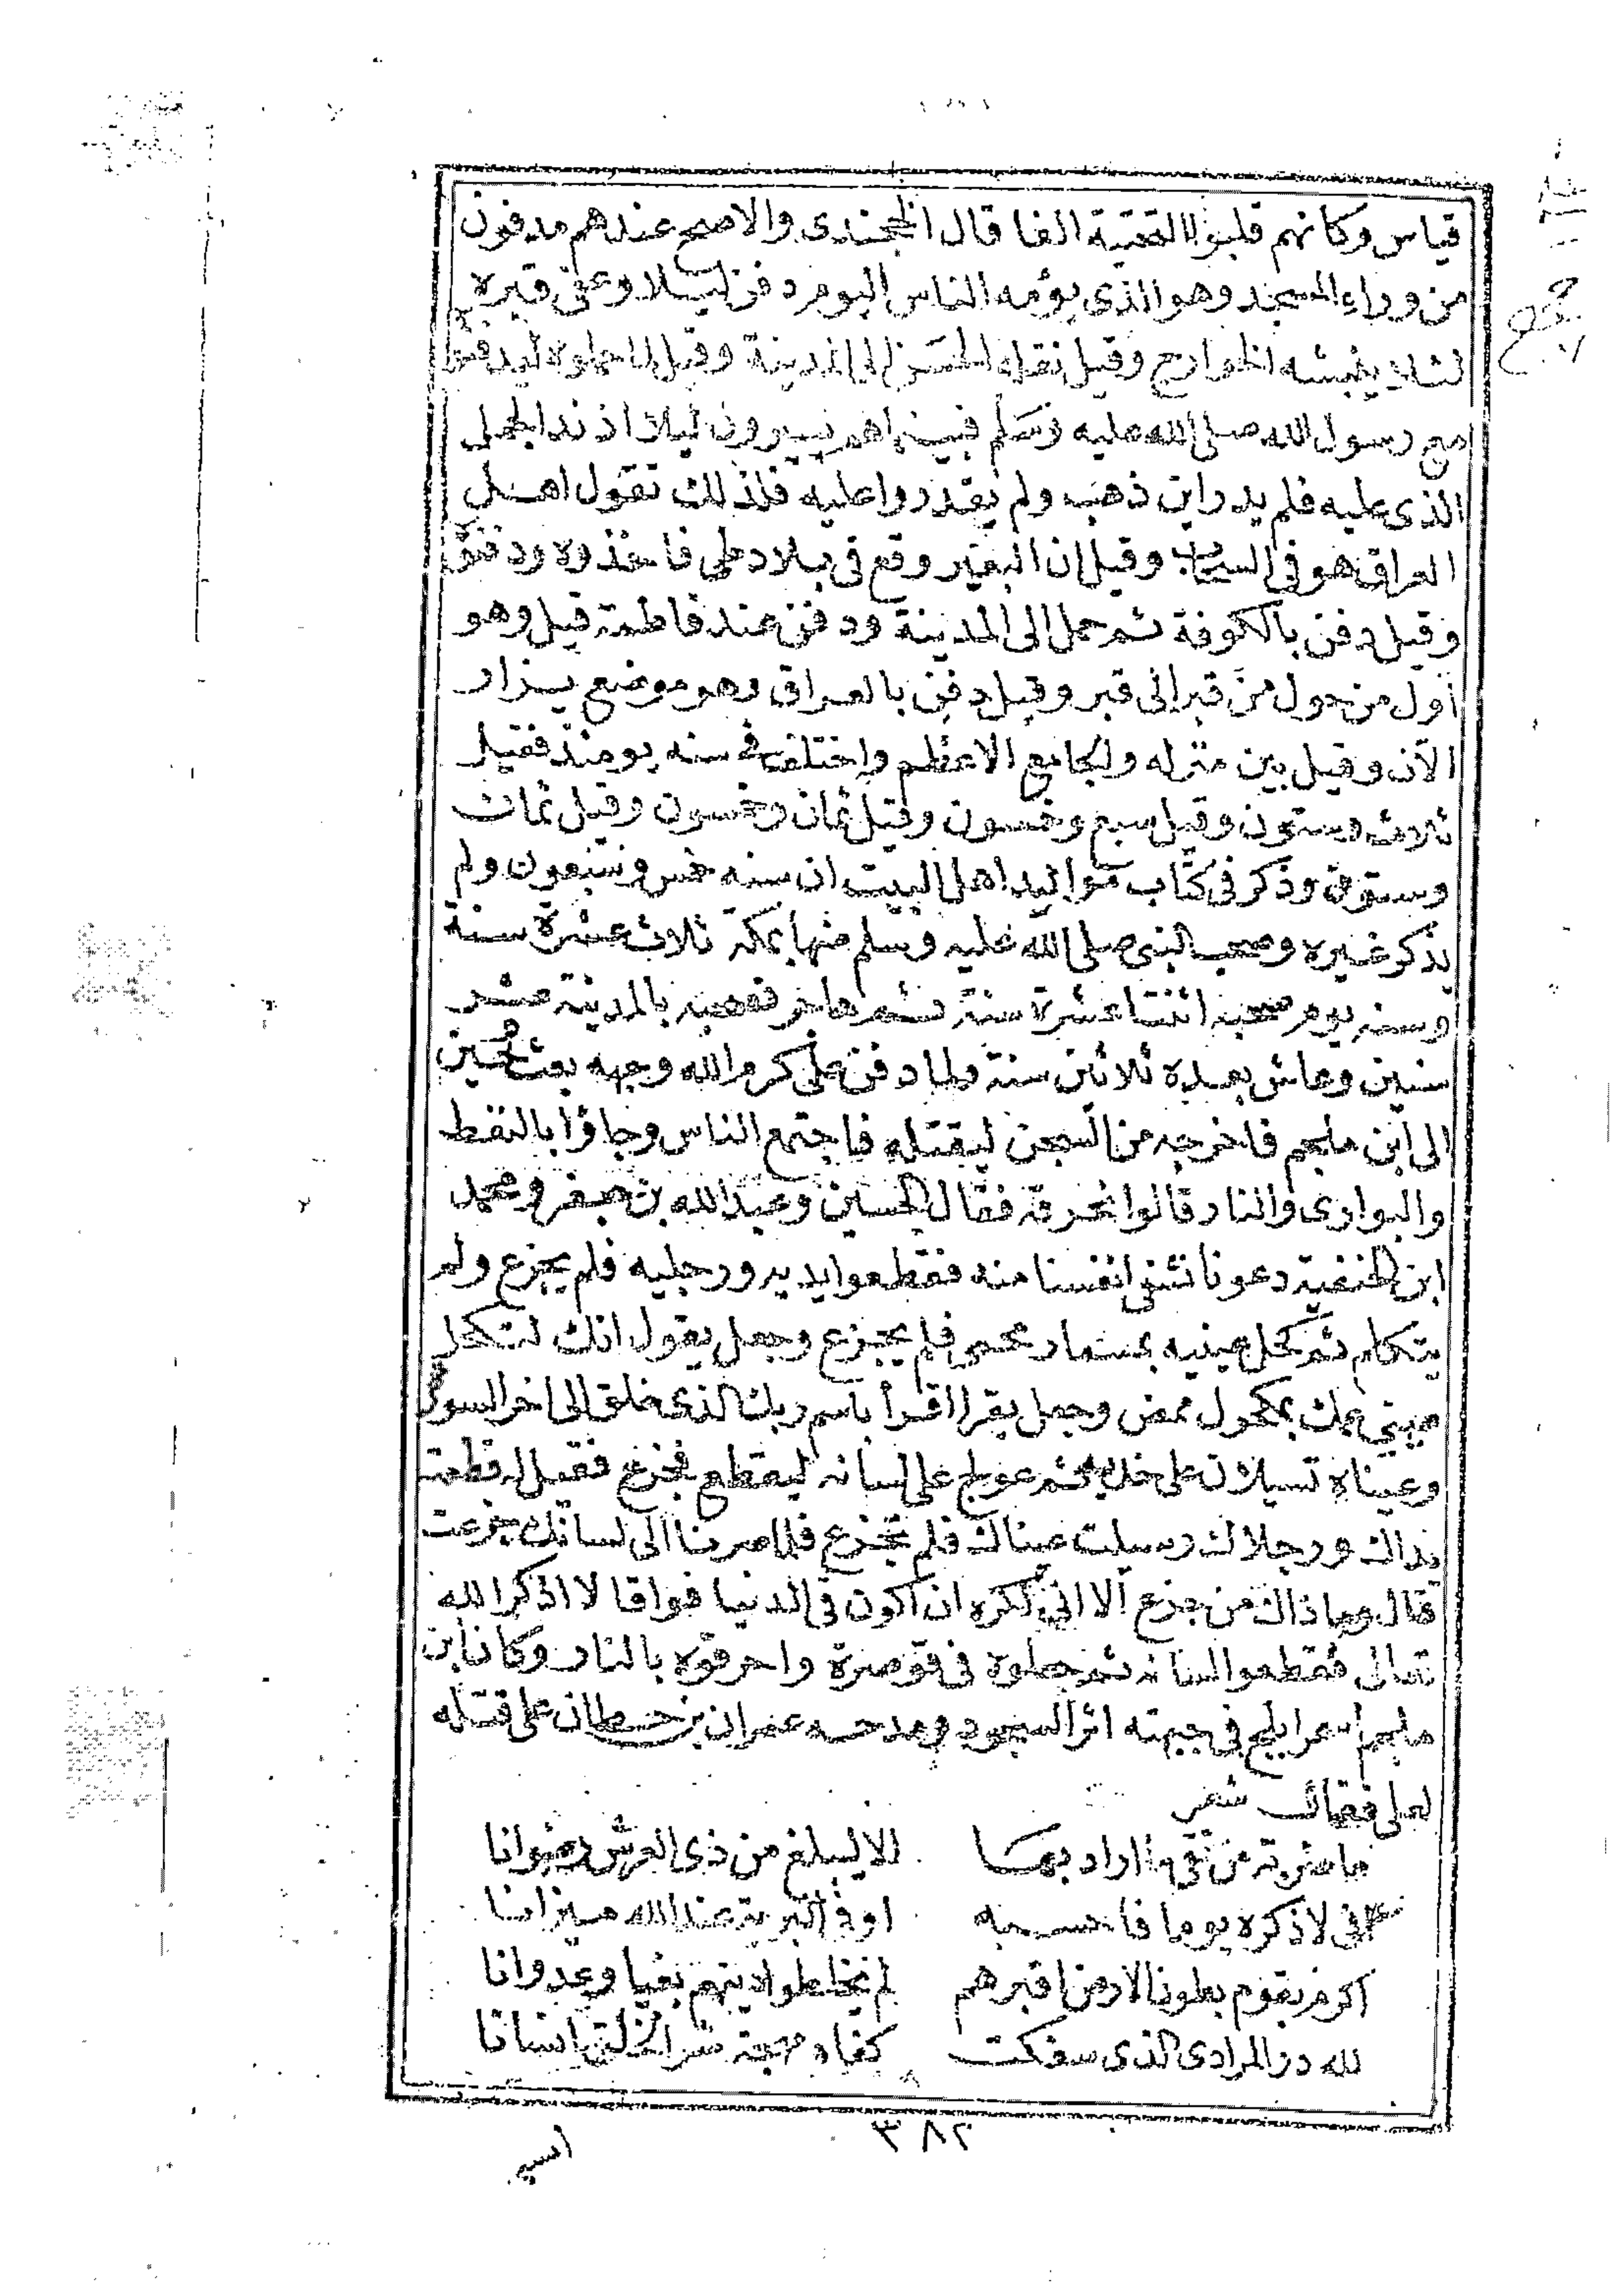 قياس وكانهم قلبوا القتيبة الفا قال الخجندى والاصح عندهم مدفون
من وراء المسجد وهو الذى يؤمه الناس اليوم دفن ليلا وعفى قبره
لئلا ينبشه الخوارج وقيل نقله الحسن الى المدينة وقيل لما حملوه ليدفنوه
مع رسول الله صلى الله عليه وسلم فبينما هم يسيرون ليلا اذ ند الجمل
الذى عليه فلم يدر اين ذهب ولم يقدروا عليه فلذلك تقول اهل
العراق هو فى السحاب وقيل ان البعير وقع فى بلاد طى فاخذوه ودفنوه
وقيل دفن بالكوفة ثم حمل الى المدينة ودفن عند فاطمة قيل وهو
اول من حول من قبر الى قبر وقيل دفن بالعراق وهو موضع يزار
الآن وقيل بين منزله والجامع الاعظم واختلف فى سنه يومئذ فقيل
ثلاث وستون وقيل سبع وخمسون وقيل ثمان وخمسون وقيل ثمان
وستون وذكر فى كتاب مواليد اهل البيت ان سنه خمس وستون ولم
يذكر غيره وصحب النبى صلى الله عليه وسلم منها بمكة ثلاث عشرة سنة
وسنه يوم صحبه اثنتا عشرة سنة ثم هاجر فصحبه بالمدينة عشر
سنين وعاش بعده ثلاثين سنة ولما دفن على كرم الله وجهه بعث الحسين
الى ابن ملجم فاخرجه من السجن ليقتله فاجتمع الناس وجاؤا بالنفط
والبوارى والنار قالوا نحرقه فقال الحسين وعبد الله بن جعفر ومحمد
ابن الحنفية دعونا نشفى انفسنا منه فقطعوا يديه ورجليه فلم يجزع ولم
يتكلم ثم كحل عينيه بمسمار محمى فلم يجزع وجعل يقول انك لتكحل
عينى عمك بمكحول ممض وجعل يقرا اقرأ باسم ربك الذى خلق الى اخر السورة
وعيناه تسيلان على خديه ثم عولج على لسانه ليقطع فجزع فقيل له قطعت
يداك ورجلاك وسملت عيناك فلم تجزع فلما صرنا الى لسانك جزعت
قال وما ذاك من جزع الا انى اكره ان اكون فى الدنيا فواقا لا اذكر الله
تعالى فقطعوا لسانه ثم جعلوه فى قوصرة واحرقوه بالنار وكان ابن
ملجم اسمر ابلج فى جبهته اثر السجود ومدحه عمران بن حطان على قتله
لعلى فقال شعر
ما ضربة من تقى ما اراد بها الا ليبلغ من ذى العرش رضوانا
انى لاذكره يوما فاحسبه اوفى البرية عند الله ميزانا
اكرم بقوم بطون الارض اقبرهم لم يخلطوا دينهم بغيا وعدوانا
لله در المرادى الذى سفكت كفاه مهجة شر الخلق انسانا
٣٨٢